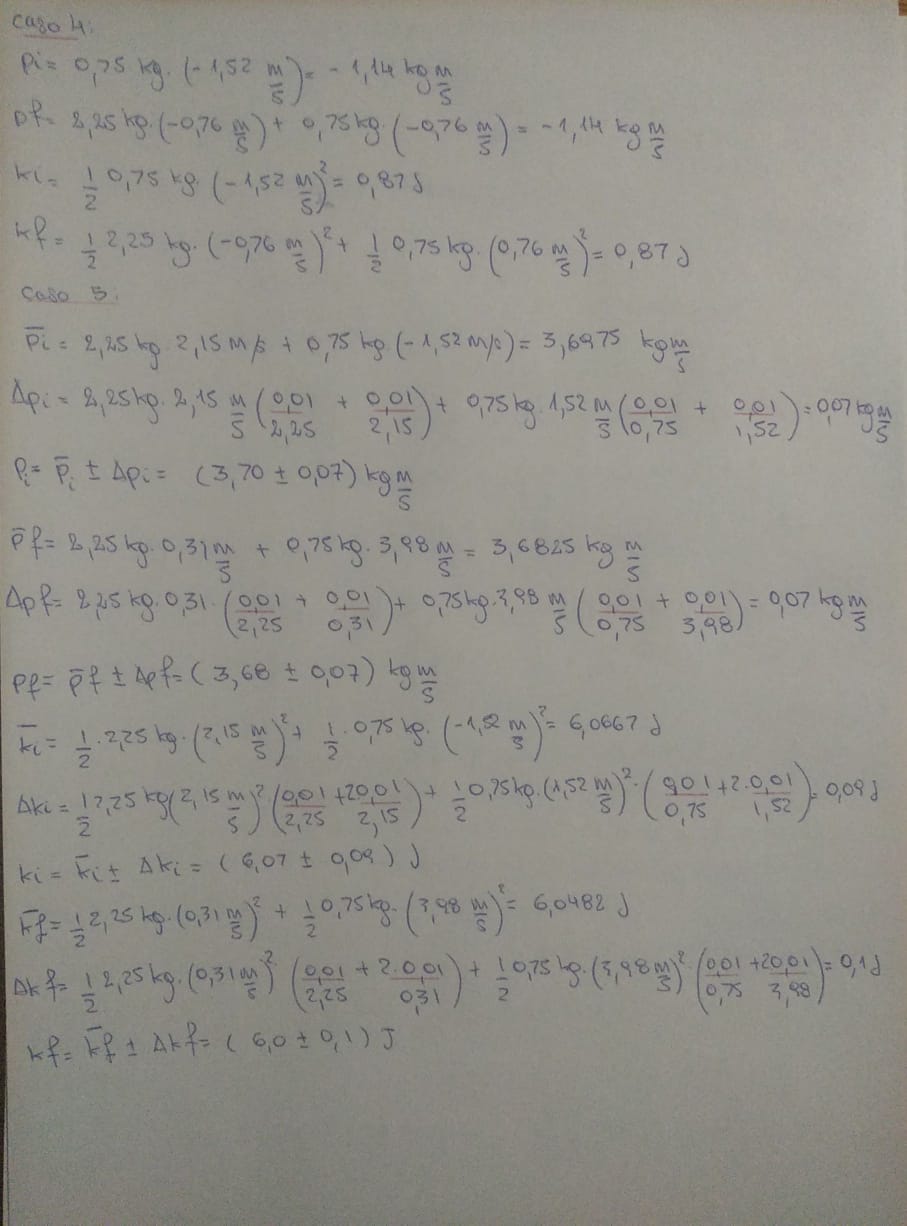 Caso 4:
pi = 0,75 kg. (-1,52 m/s) = -1,14 kg m/s
pf = 2,25 kg. (-0,76 m/s) + 0,75 kg. (-0,76 m/s) = -1,14 kg m/s
ki = 1/2 0,75 kg. (-1,52 m/s)² = 0,87 J
kf = 1/2 2,25 kg. (-0,76 m/s)² + 1/2 0,75 kg. (0,76 m/s)² = 0,87 J
Caso 5:
p̅i = 2,25 kg. 2,15 m/s + 0,75 kg. (-1,52 m/s) = 3,6975 kg m/s
Δpi = 2,25 kg. 2,15 m/s (0,01/2,25 + 0,01/2,15) + 0,75 kg. 1,52 m/s (0,01/0,75 + 0,01/1,52) = 0,07 kg m/s
Pi = p̅i ± Δpi = (3,70 ± 0,07) kg m/s
p̅f = 2,25 kg. 0,31 m/s + 0,75 kg. 3,98 m/s = 3,6825 kg m/s
Δpf = 2,25 kg. 0,31. (0,01/2,25 + 0,01/0,31) + 0,75 kg. 3,98 m/s (0,01/0,75 + 0,01/3,98) = 0,07 kg m/s
Pf = p̅f ± Δpf = (3,68 ± 0,07) kg m/s
k̅i = 1/2 . 2,25 kg. (2,15 m/s)² + 1/2 . 0,75 kg. (-1,52 m/s)² = 6,0667 J
Δki = 1/2 2,25 kg (2,15 m/s)² (0,01/2,25 + 2 0,01/2,15) + 1/2 0,75 kg. (1,52 m/s)². (0,01/0,75 + 2. 0,01/1,52) = 0,09 J
ki = k̅i ± Δki = (6,07 ± 0,09) J
k̅f = 1/2 2,25 kg. (0,31 m/s)² + 1/2 0,75 kg. (3,98 m/s)² = 6,0482 J
Δkf = 1/2 2,25 kg. (0,31 m/s)² (0,01/2,25 + 2. 0,01/0,31) + 1/2 0,75 kg. (3,98 m/s)². (0,01/0,75 + 2 0,01/3,98) = 0,1 J
kf = k̅f ± Δkf = (6,0 ± 0,1) J